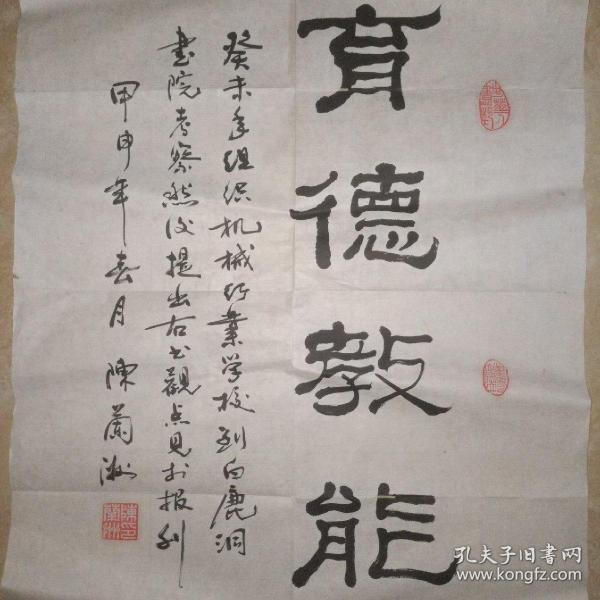 育德教能
癸未年组织机械行业学校到白鹿洞
书院考察然后提出右书觀点见于报刊
甲申年春月 陳蘭洲
陳蘭洲
孔夫子旧书网
www.kongfz.com